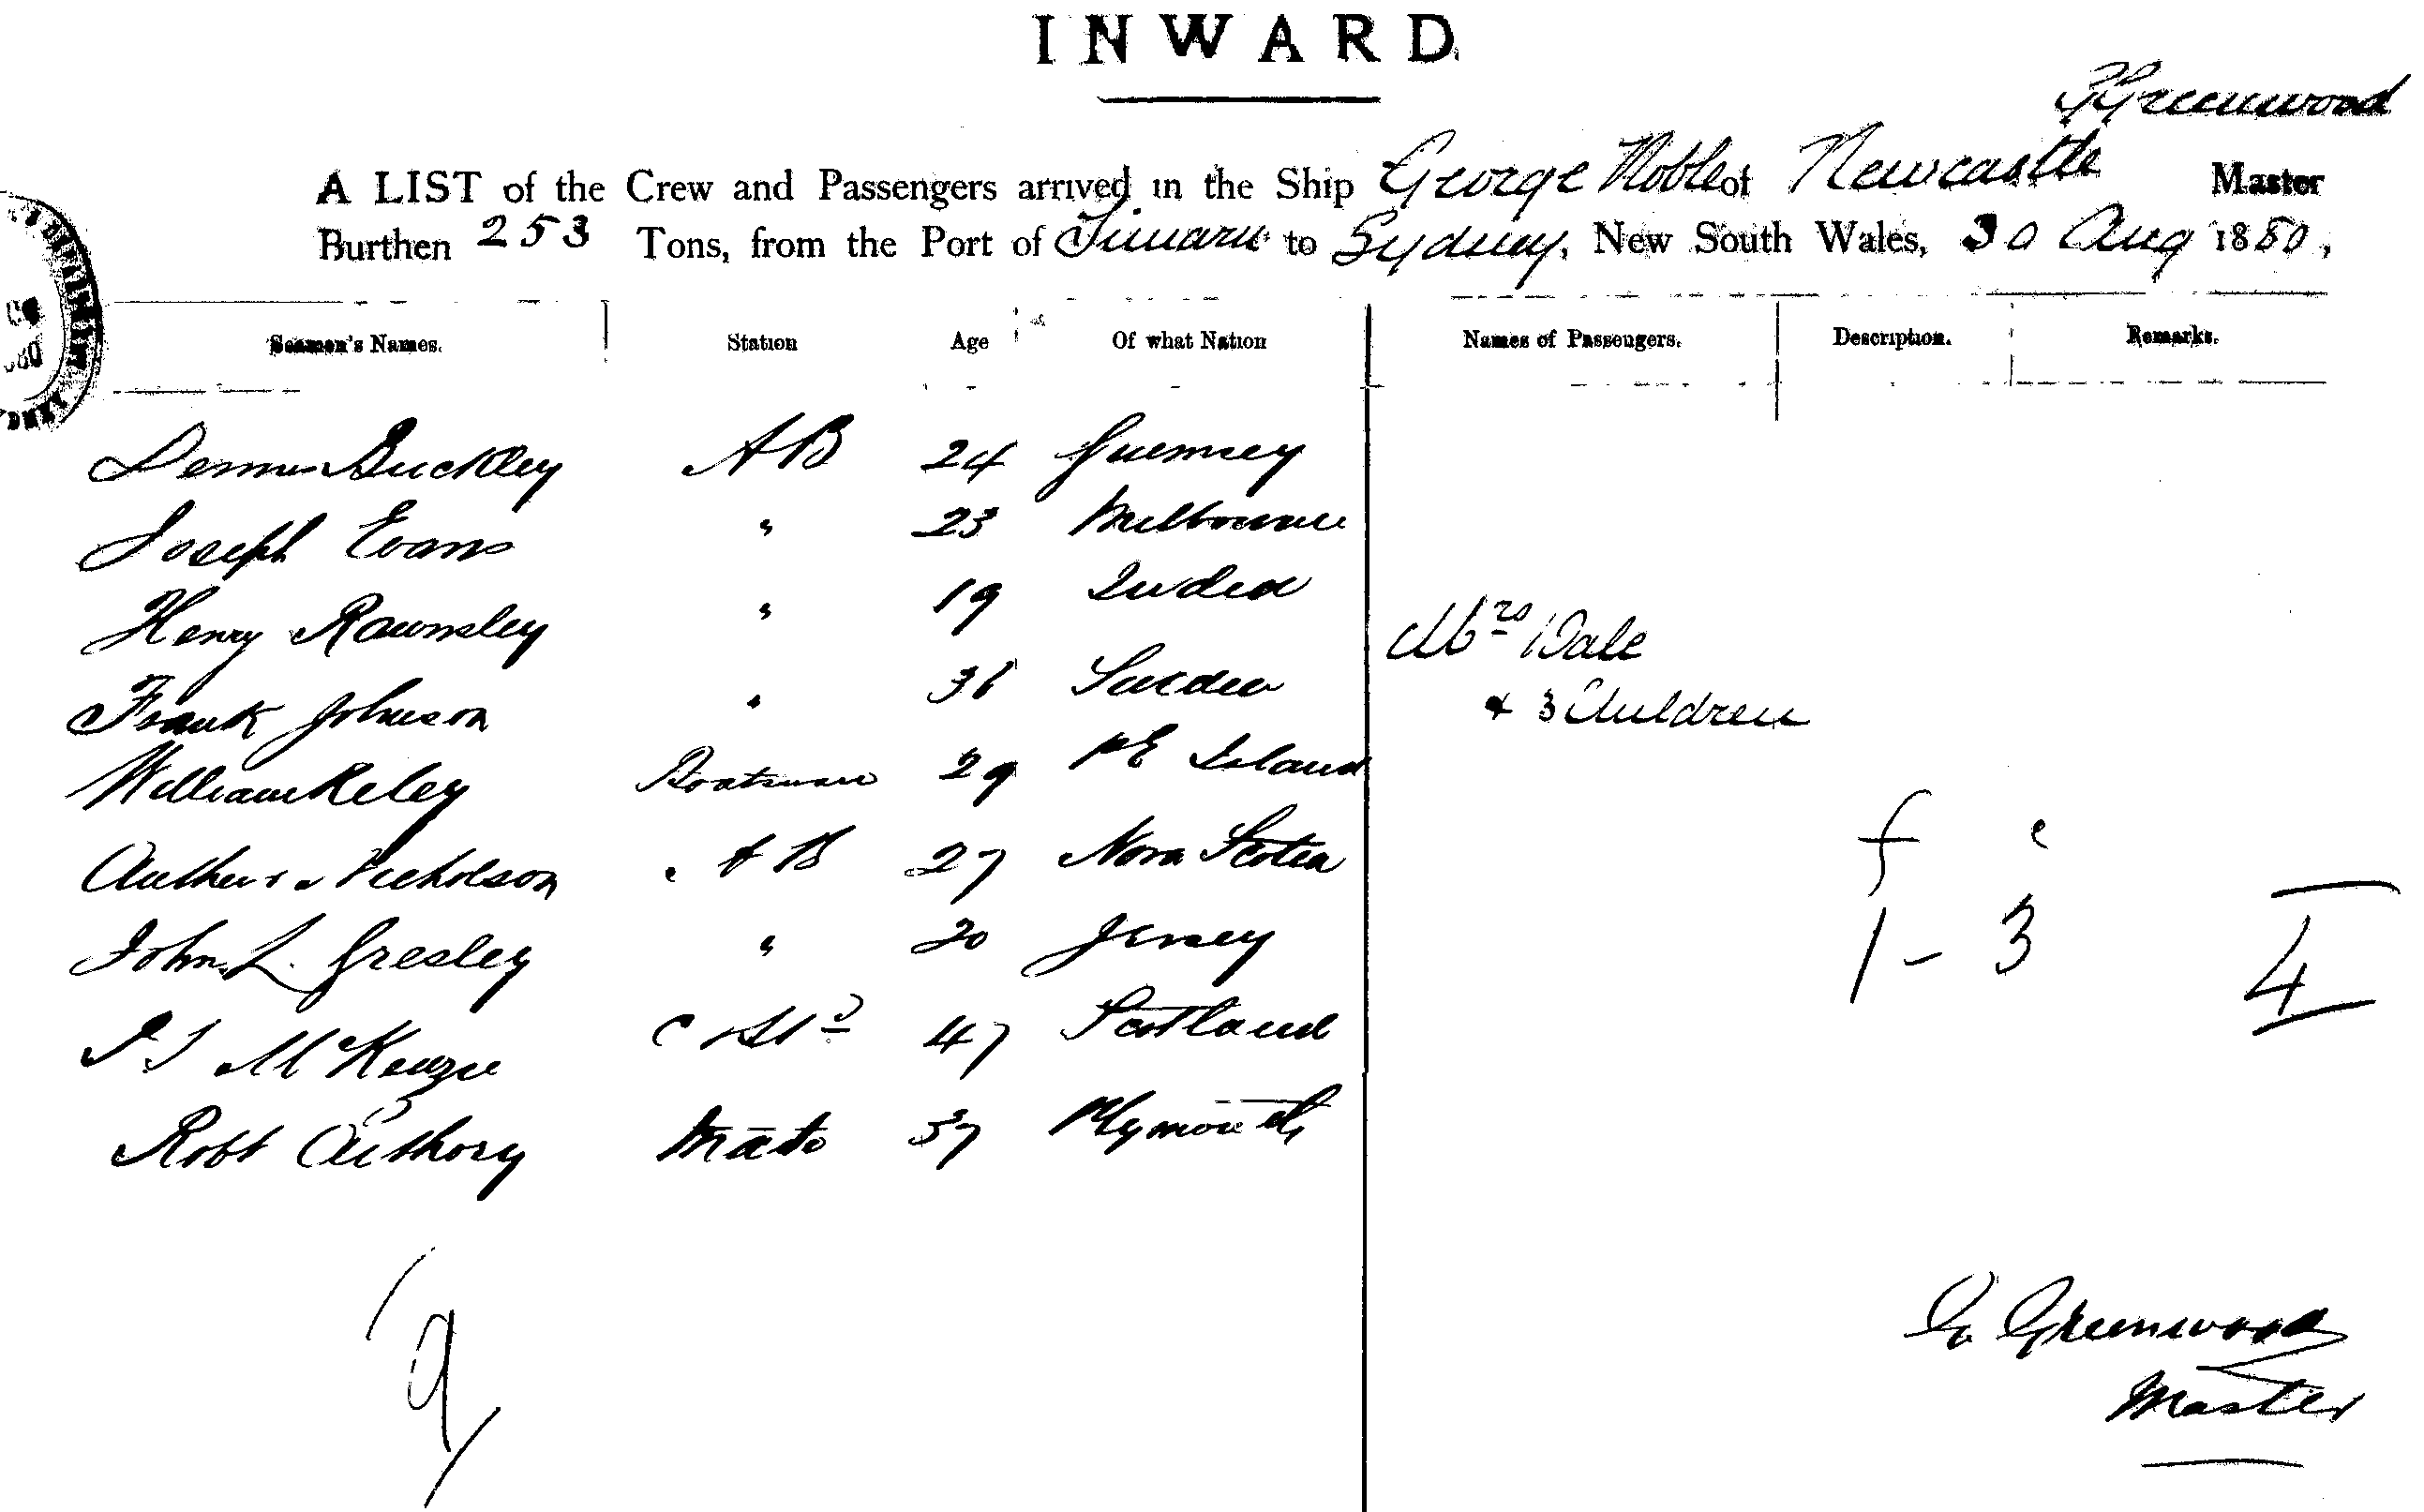 INWARD
Greenwood
A LIST of the Crew and Passengers arrived in the Ship George Noble of Newcastle Master
Burthen 253 Tons, from the Port of Timaru to Sydney, New South Wales, 30 Aug 1880,
Seamen's Names. Station Age Of what Nation Names of Passengers. Description. Remarks.
Dennis Buckley AB 24 Guernsey
Joseph Evans " 23 Melbourne
Henry Rawnsley " 19 India
Mrs Dale
Frank Johnson " 36
& 3 Children
William Reley Boatswain 29 P E Island
f c
Arthur Nicholson AB 27 Nova Scotia
1 - 3 4
John L. Gresley " 20 Jersey
McKenzie C & Std 47 Scotland
Robt Anthony Mate 37 Plymouth
9
G Greenwood
Master